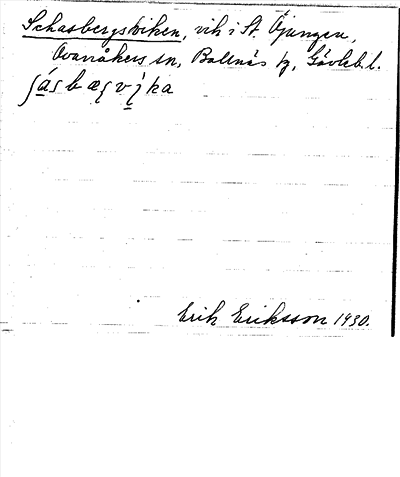 Schasbergsviken, vik i St. Öjungen,
Ovanåkers sn, Bollnäs tg, Gävleb. l.
Erik Eriksson 1930.